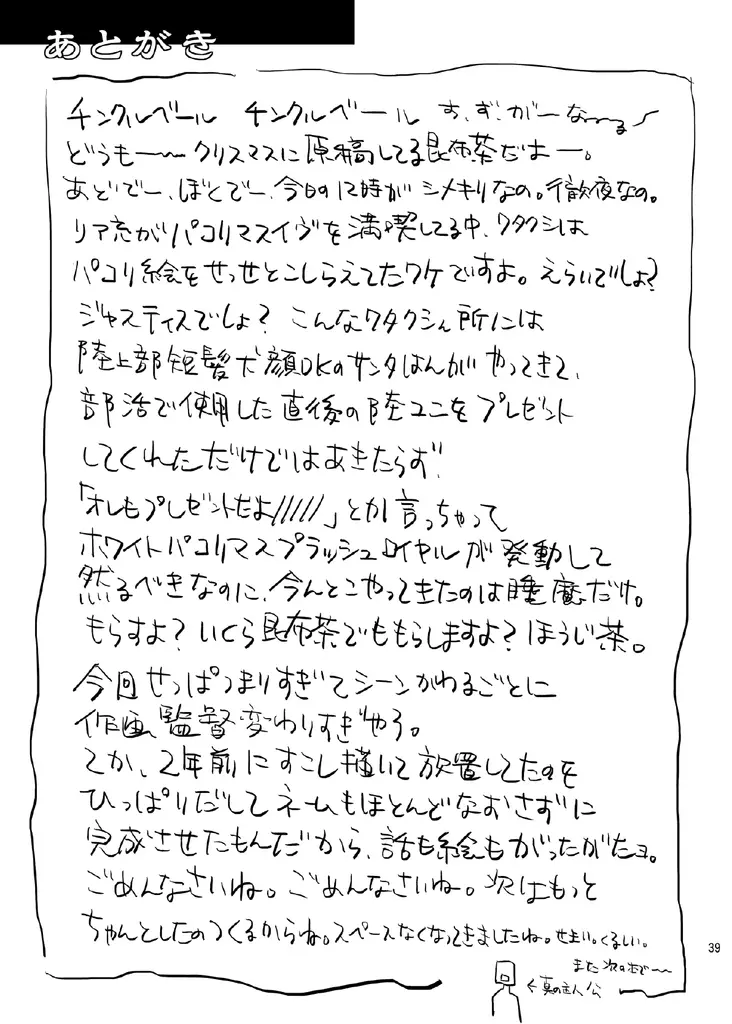 あとがき
チンクルベール チンクルベール す、ず、がーなーーるー
どうもー〜〜クリスマスに原稿してる昆布茶だよー。
あどでー、ぼとでー、今日の12時がシメキリなの。徹夜なの。
リア充がパコリマスイヴを満喫してる中、ワタクシは
パコリ絵をせっせとこしらえてたワケですよ。えらいでしょ?
ジャスティスでしょ? こんなワタクシん所には
陸上部短髪犬顔DKのサンタはんがやってきて、
部活で使用した直後の陸ユニをプレゼント
してくれただけではあきたらず、
「オレもプレゼントだよ/////」とか言っちゃって
ホワイトパコリマスプラッシュロイヤルが発動して
然るべきなのに、今んとこやってきたのは睡魔だけ。
もらすよ? いくら昆布茶でももらしますよ? ほうじ茶。
今回せっぱつまりすぎてシーンがわるごとに
作画監督変わりすぎやろ。
てか、2年前にすこし描いて放置してたのを
ひっぱりだしてネームもほとんどなおさずに
完成させたもんだから、話も絵もがったがたョ。
ごめんなさいね。ごめんなさいね。次はもっと
ちゃんとしたのつくるからね。スペースなくなってきましたね。せまい。くるしい。
また次の本で〜〜
←真の主人公
39